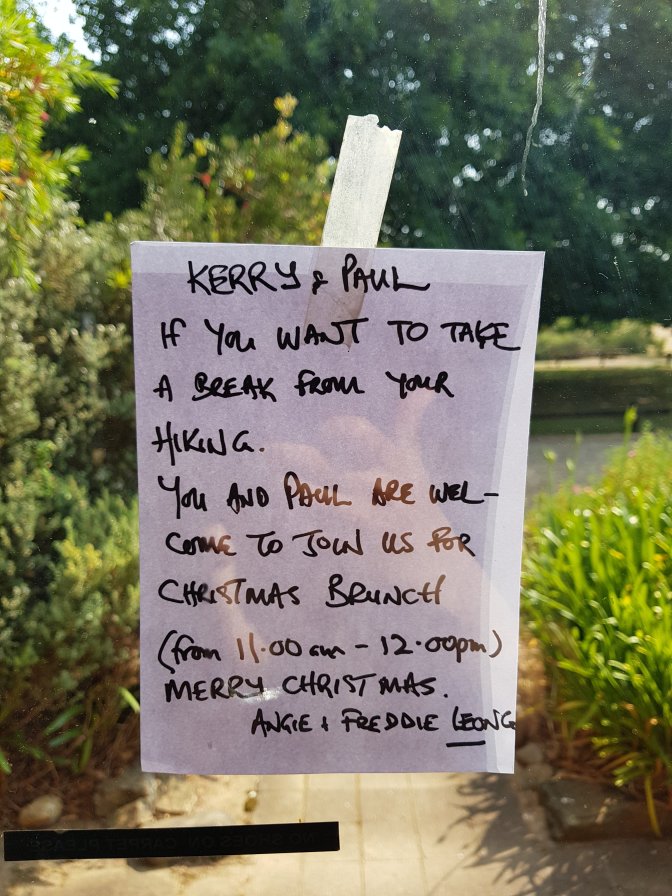 KERRY & PAUL
If You WANT TO TAKE
A BREAK FROM YOUR
HIKING.
You AND PAUL ARE WEL-
COME TO JOIN US FOR
CHRISTMAS BRUNCH
(from 11.00 am - 12.00pm)
MERRY CHRISTMAS.
ANGIE & FREDDIE LEONG
NO SHOES ON CARPET PLEASE